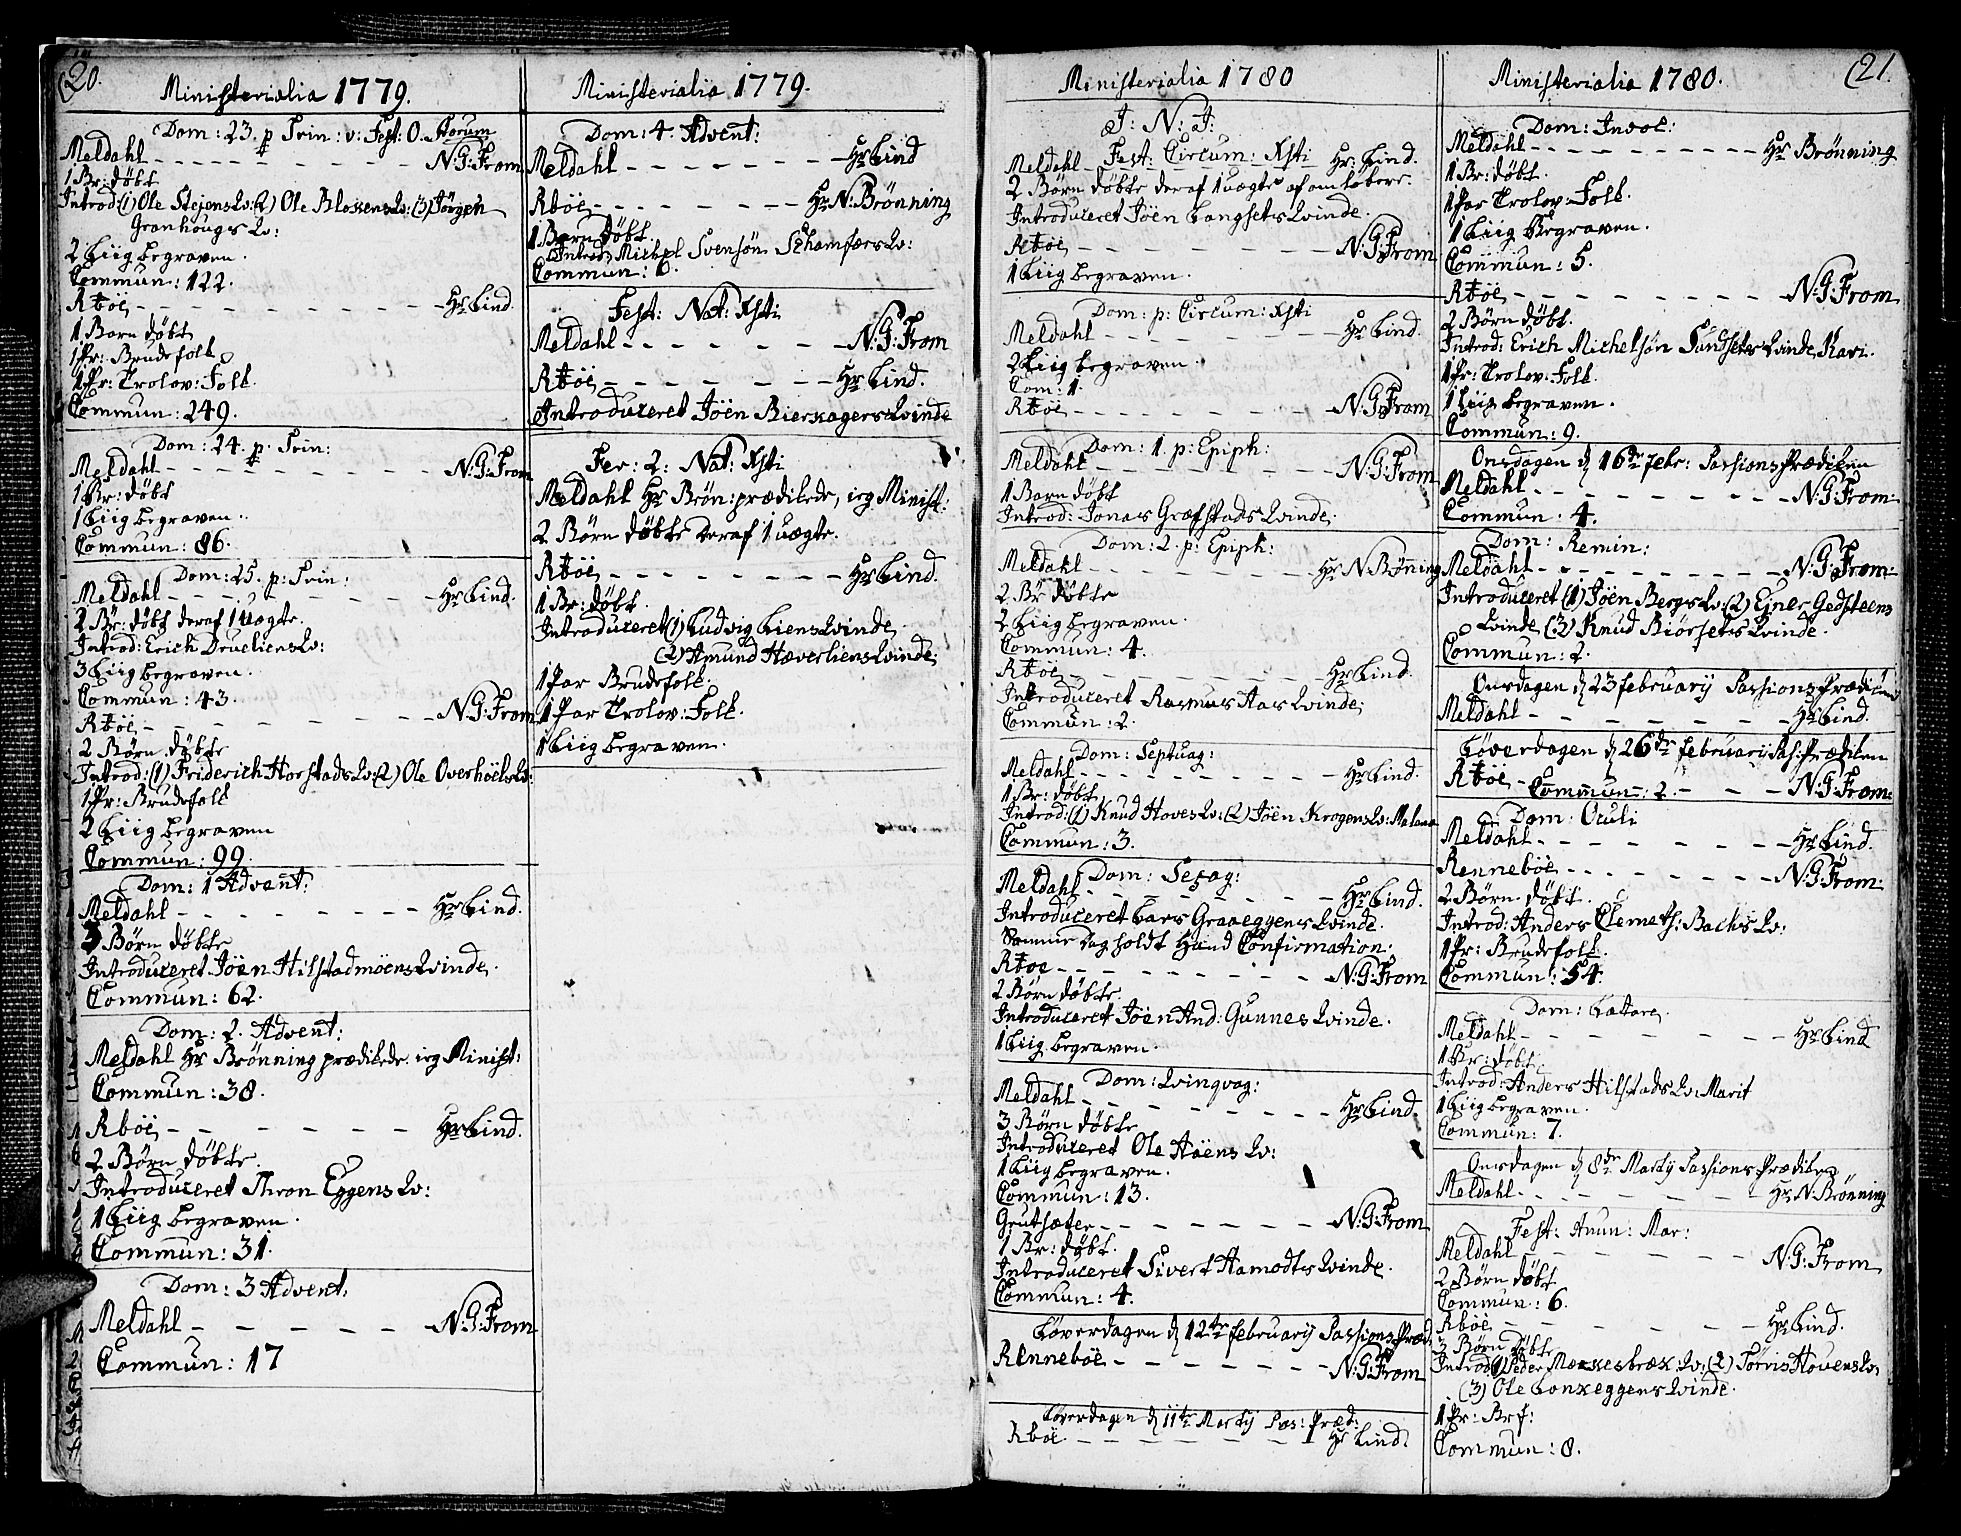 20.
Ministerialia 1779.
Dom: 23. p Trin: v: Fest: O. Storum
Meldahl - - - N:G:From
1 Br: døbt
Introd: (1) Ole Stejens Qv: (2) Ole Blossens Qv: (3) Jørgen
Granhougs Qv:
2 Liig begraven.
Commun: 122.
Rböe - - - Hr Lind.
1 Barn døbt
1 Pr: Brudefolk
1 Pr: Trolov: Folk.
Commun: 249.
Dom: 24. p. Trin:
Meldahl - - - N:G:From
1 Br: døbt
1 Liig begraven.
Commun: 86.
Dom: 25. p: Trin:
Meldahl - - - Hr Lind.
2 Br: døbt deraf 1 uægte.
Introd: Erich Drueliens Qv:
3 Liig begraven.
Commun: 43.
Rböe - - - N:G:From
2 Børn døbte
Introd: (1) Friderich Horstads Qv: (2) Ole Overhöels Qv:
1 Pr: Brudefolk
2 Liig begraven
Commun: 99.
Dom: 1 Advent:
Meldahl - - - Hr Lind.
3 Børn døbte
Introduceret Jöen Hilstadmöens Qvinde.
Commun: 62.
Dom: 2. Advent:
Meldahl Hr Brønning prædikede. ieg Minist:
Commun: 38.
Rböe - - - Hr Lind.
2 Børn døbte.
Introduceret Thron Eggens Qv:
1 Liig begraven.
Commun: 31.
Dom: 3 Advent:
Meldahl - - - N:G:From
Commun: 17
Ministerialia 1779.
Dom: 4. Advent:
Meldahl - - - Hr Lind
Rböe - - - Hr N: Brønning
1 Barn døbt.
Introd: Michel Svensön Schamfærs Qv:
Commun: 6.
Fest: Nat: Xsti
Meldahl - - - N:G:From
Rböe - - - Hr Lind.
Introduceret Jöen Bierkagers Qvinde
Fer: 2: Nat: Xsti
Meldahl Hr Brøn: prædikede, ieg Minist:
2 Børn døbte Deraf 1 uægte.
Rböe - - - Hr Lind.
1 Br: døbt.
Introduceret (1) Ludvig Liens Qvinde,
(2) Amund Hæverliens Qvinde;
1 Par Brudefolk.
1 Par Trolov: Folk.
1 Liig begraven.
Ministerialia 1780
J: N: J:
Fest: Circum: Xsti
Meldahl - - - Hr: Lind.
2 Børn døbte deraf 1 uægte af omløbere.
Introduceret Jöen Langsets Qvinde.
Rböe - - - N:G:From
1 Liig begraven.
Dom: p: Circum: Xsti
Meldahl - - - Hr Lind.
2 Liig begraven.
Com: 1.
Rböe - - - N:G:From
Dom: 1. p: Epiph:
Meldahl - - - N:G:From
1 Barn døbt
Introd: Jonas Græfstads Qvinde;
Dom: 2. p: Epiph:
Meldahl - - - Hr N Brøning
2 Br døbte
2 Liig begraven.
Commun: 4.
Rböe - - - Hr Lind.
Introduceret Rasmus Aas Qvinde;
Commun: 2.
Dom: Septuag:
Meldahl - - - Hr Lind.
1 Br: døbt.
Introd: (1) Knud Hoves Qv: (2) Jöen Krogens Qv: Malena
Commun: 3.
Dom: Sexag:
Meldahl - - - Hr Lind.
Introduceret Lars Graaeggens Qvinde.
Samme Dag holdt Hand Confirmation.
Rböe - - - N:G:From
2 Børn døbte.
Introduceret Jöen And: Gunnes Qvinde.
1 Liig begraven.
Dom: Qvinqvag:
Meldahl - - - Hr Lind.
3 Børn døbte
Introduceret Ole Höens Qv:
1 Liig begraven.
Commun: 13.
Grutsæter - - - N:G:From
1 Br: døbt.
Introduceret Sivert Hamodts Qvinde.
Commun: 4.
Løverdagen d 12te februarij Passions Præd:
Renneböe - - - N:G:From
Løverdagen d 11te Martij Pas: Præd:
Rböe - - - Hr Lind.
21.
Ministerialia 1780.
Dom: Invoc:
Meldahl - - - Hr Brønning
1 Br: døbt.
1 Par Trolov: Folk.
1 Liig Begraven.
Commun: 5.
Rböe - - - N:G:From
2 Børn døbt.
Introd: Erich Michelsøn Sundsets Qvinde, Kari.
1 Pr: Trolov: Folk.
1 Liig begraven.
Commun: 9.
Onsdagen d 16de Febr: Passions Prædiken
Meldahl - - - N:G:From
Commun. 4.
Dom: Remin:
Meldahl - - - N:G:From
Introduceret (1) Jöen Bergs Qv: (2) Ejner Gedsteens
Qvinde (3) Knud Biørsets Qvinde.
Commun: 2.
Onsdagen d 23 februarij Passions Prædiken
Meldahl - - - Hr Lind.
Løverdagen d 26de februarij Pas: Prædiken
Rböe - Commun: 2. - - - N:G:From:
Dom: Oculi
Meldahl - - - Hr Lind.
Renneböe - - - N:G:From:
2 Børn døbt.
Introd: Anders Clemets: Backs Qv:
1 Pr: Brudefolk.
Commun: 54.
Dom: Lætare
Meldahl - - - Hr Lind
1 Br: døbt
Introd: Anders Hilstads Qv: Marit
1 Liig begraven.
Commun: 7.
Onsdagen d 8de Martij Passions Prædiken
Meldahl - - - Hr N: Brønning
Fest: Anun: Mar:
Meldahl - - - N:G:From
2 Børn døbt
Commun: 6.
Rböe - - - Hr Lind.
3 Børn døbte
Introd: (1) Peder Mærkesbræk: Qv: (2) Tørris Hovens Qv.
(3) Ole Lonxeggens Qvinde.
1 Pr: Brf:
Commun: 8.